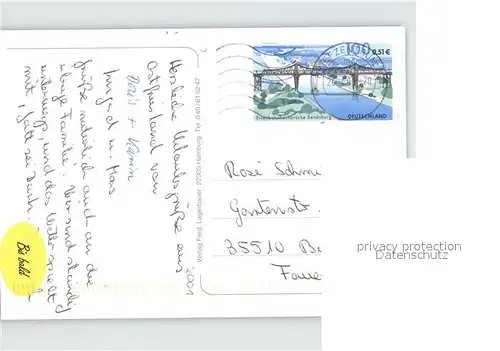 Herzliche Urlaubsgrüße aus
Ostfriesland von
Irmgard u. Hans
Doris + Karin
Grüße natürlich auch an die
übrige Familie. Wir sind ständig
unterwegs, und das Wetter spielt
mit, Gott sei Dank.
2001
Bis bald
Verlag Ferd. Lagerbauer, 22305 Hamburg
100
0,51€
Eisenbahnhochbrücke Rendsburg
DEUTSCHLAND
Rosé Schm
Gartenstr.
35510 B
privacy protection
Datenschutz